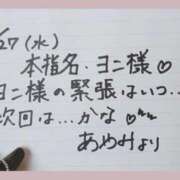 27(水)
本指名・ヨニ様♡
ヨニ様の緊張はいつ…
次回は…かな♡
あめみより